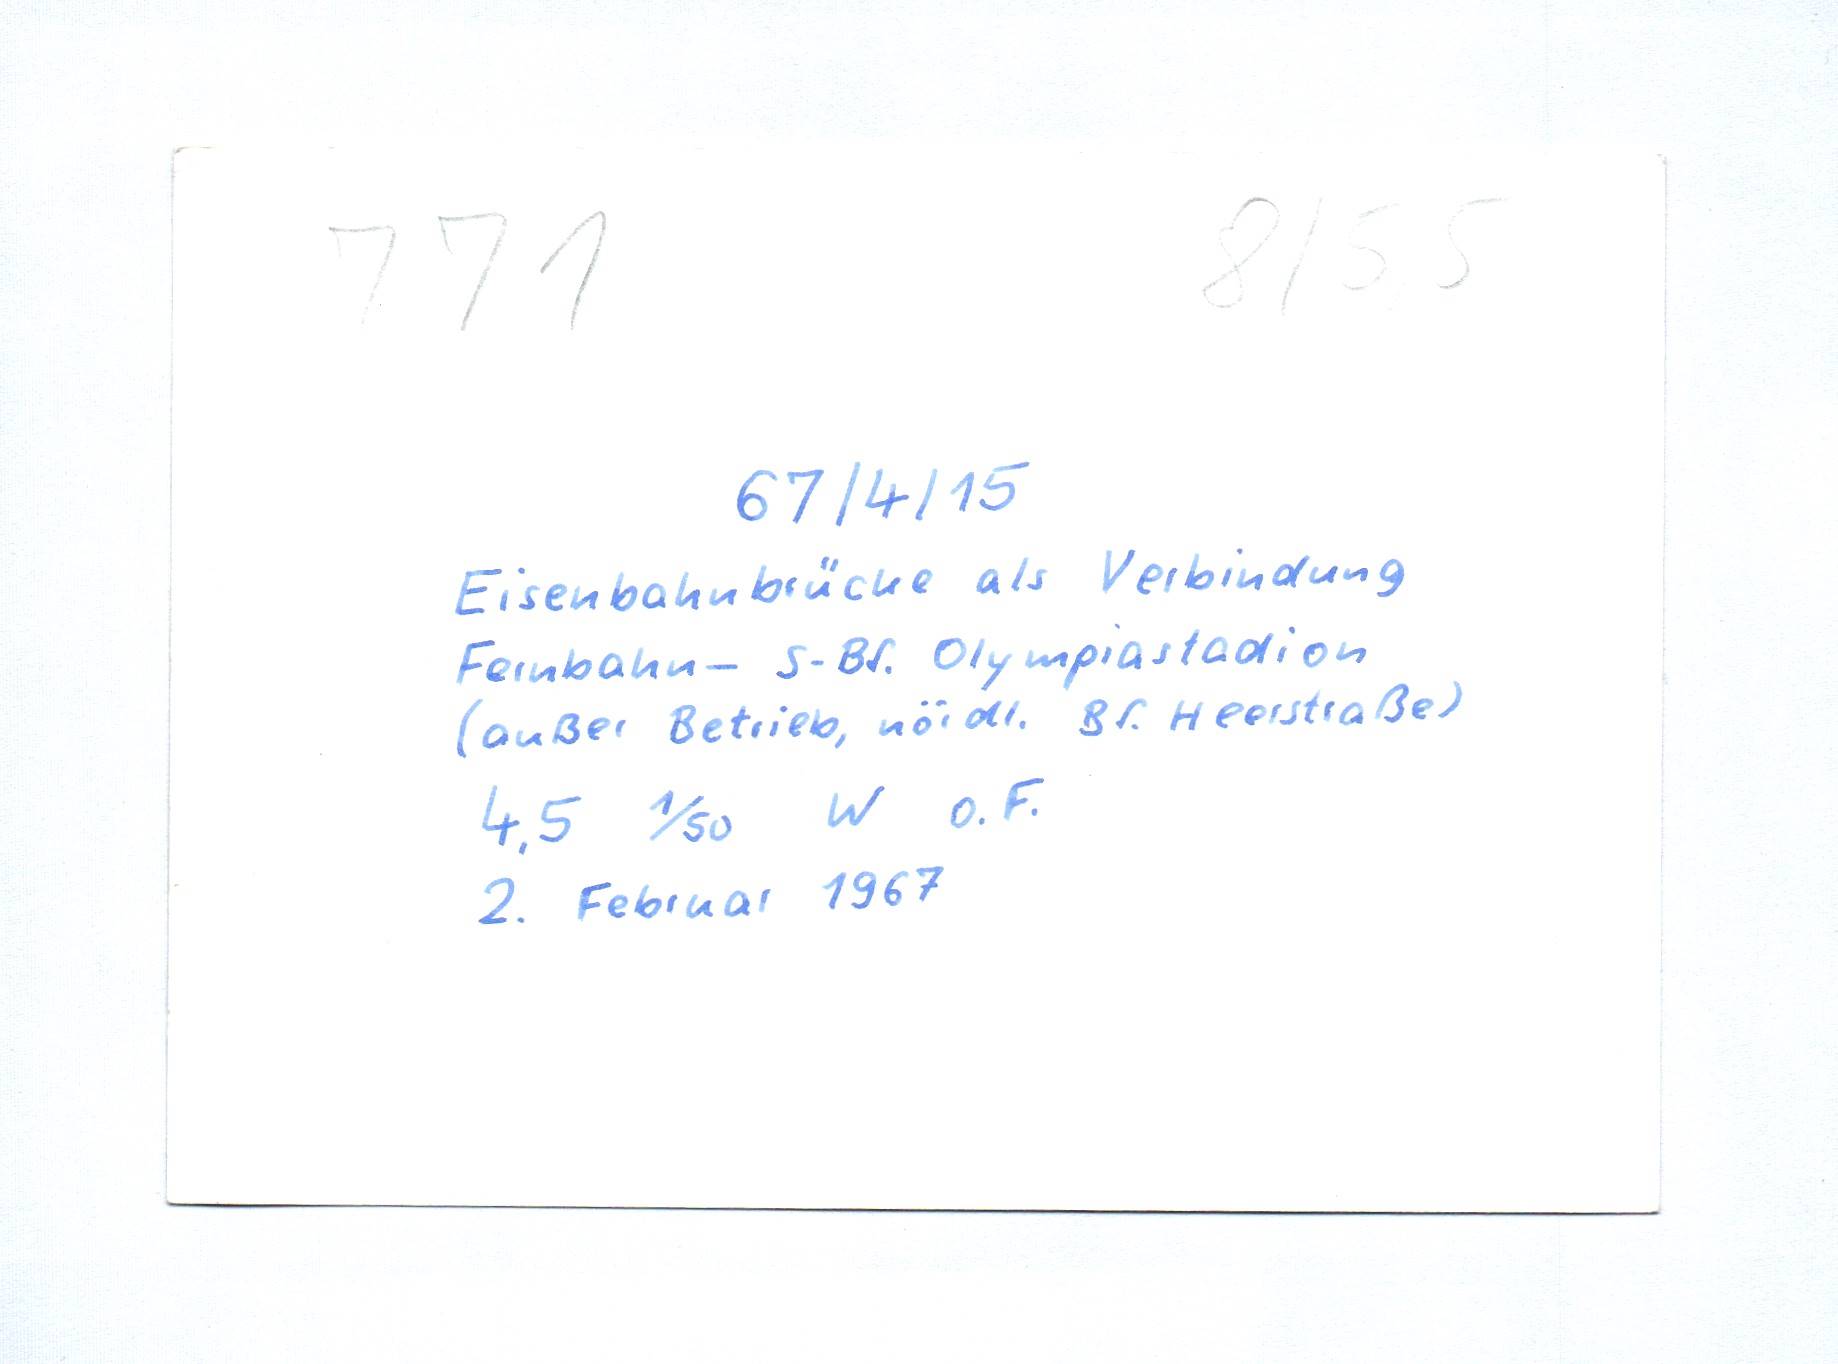 771 8/5,5
67/4/15
Eisenbahnbrücke als Verbindung
Fernbahn– S-Bf. Olympiastadion
(außer Betrieb, nördl. Bf. Heerstraße)
4,5 1/50 W o.F.
2. Februar 1967